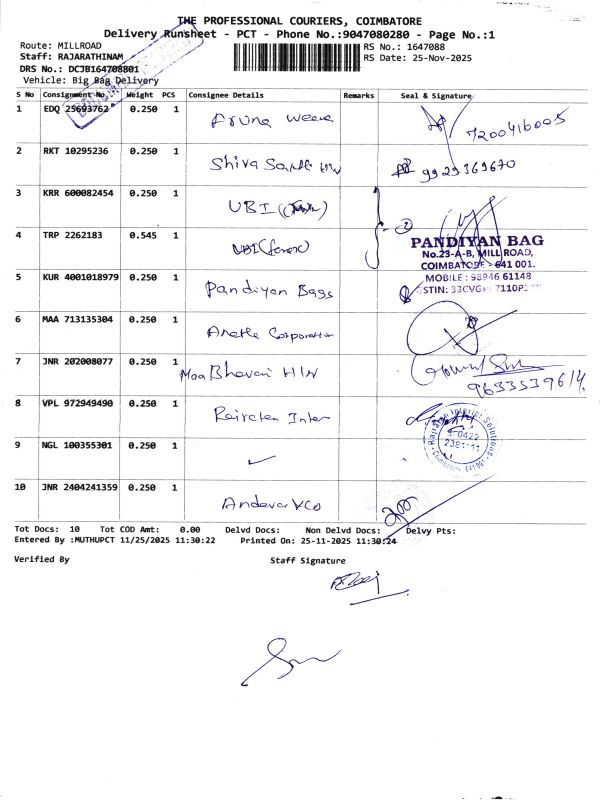 THE PROFESSIONAL COURIERS, COIMBATORE
Delivery Runsheet - PCT - Phone No.:9047080280 - Page No.:1
Route: MILLROAD RS No.: 1647088
Staff: RAJARATHINAM RS Date: 25-Nov-2025
DRS No.: DCJB164708801
Vehicle: Big Bag Delivery
S No Consignment No. Weight PCS Consignee Details Remarks Seal & Signature
1 EDQ 25693762 0.250 1 Aruna 7200416005
2 RKT 10295236 0.250 1 Shiva H/W 9929369670
3 KRR 600082454 0.250 1 UBI
4 TRP 2262183 0.545 1 UBI (forex)
PANDIYAN BAG
No.23-A-B, MILL ROAD,
COIMBATORE - 641 001.
5 KUR 4001018979 0.250 1 Pandiyan Bags MOBILE : 98946 61148
6 MAA 713135304 0.250 1 Corporation
7 JNR 202008077 0.250 1 Maa Bhavani H/W
8 VPL 972949490 0.250 1 Rajratan Inter
Rajratan Interior Solutions
0422
Coimbatore 641001
9 NGL 100355301 0.250 1 ✓
10 JNR 2404241359 0.250 1 Andavar & Co
Tot Docs: 10 Tot COD Amt: 0.00 Delvd Docs: Non Delvd Docs: Delvy Pts:
Entered By :MUTHUPCT 11/25/2025 11:30:22 Printed On: 25-11-2025 11:30:24
Verified By Staff Signature